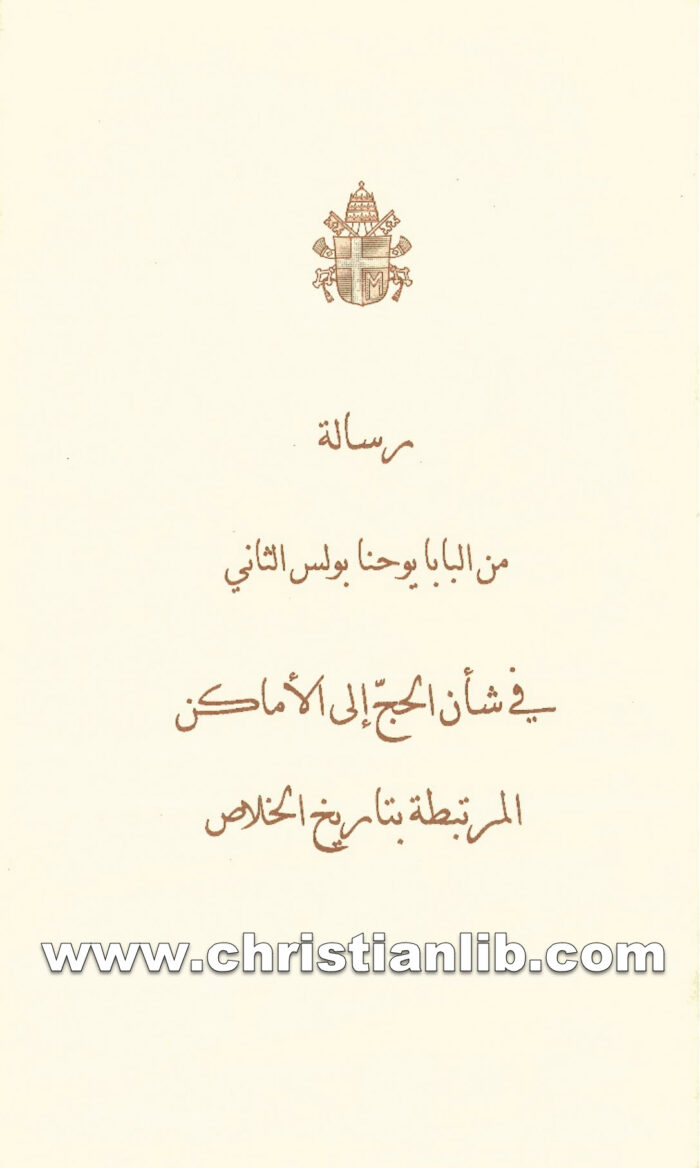 رسالة
من البابا يوحنا بولس الثاني
في شأن الحجّ إلى الأماكن
المرتبطة بتاريخ الخلاص
www.christianlib.com